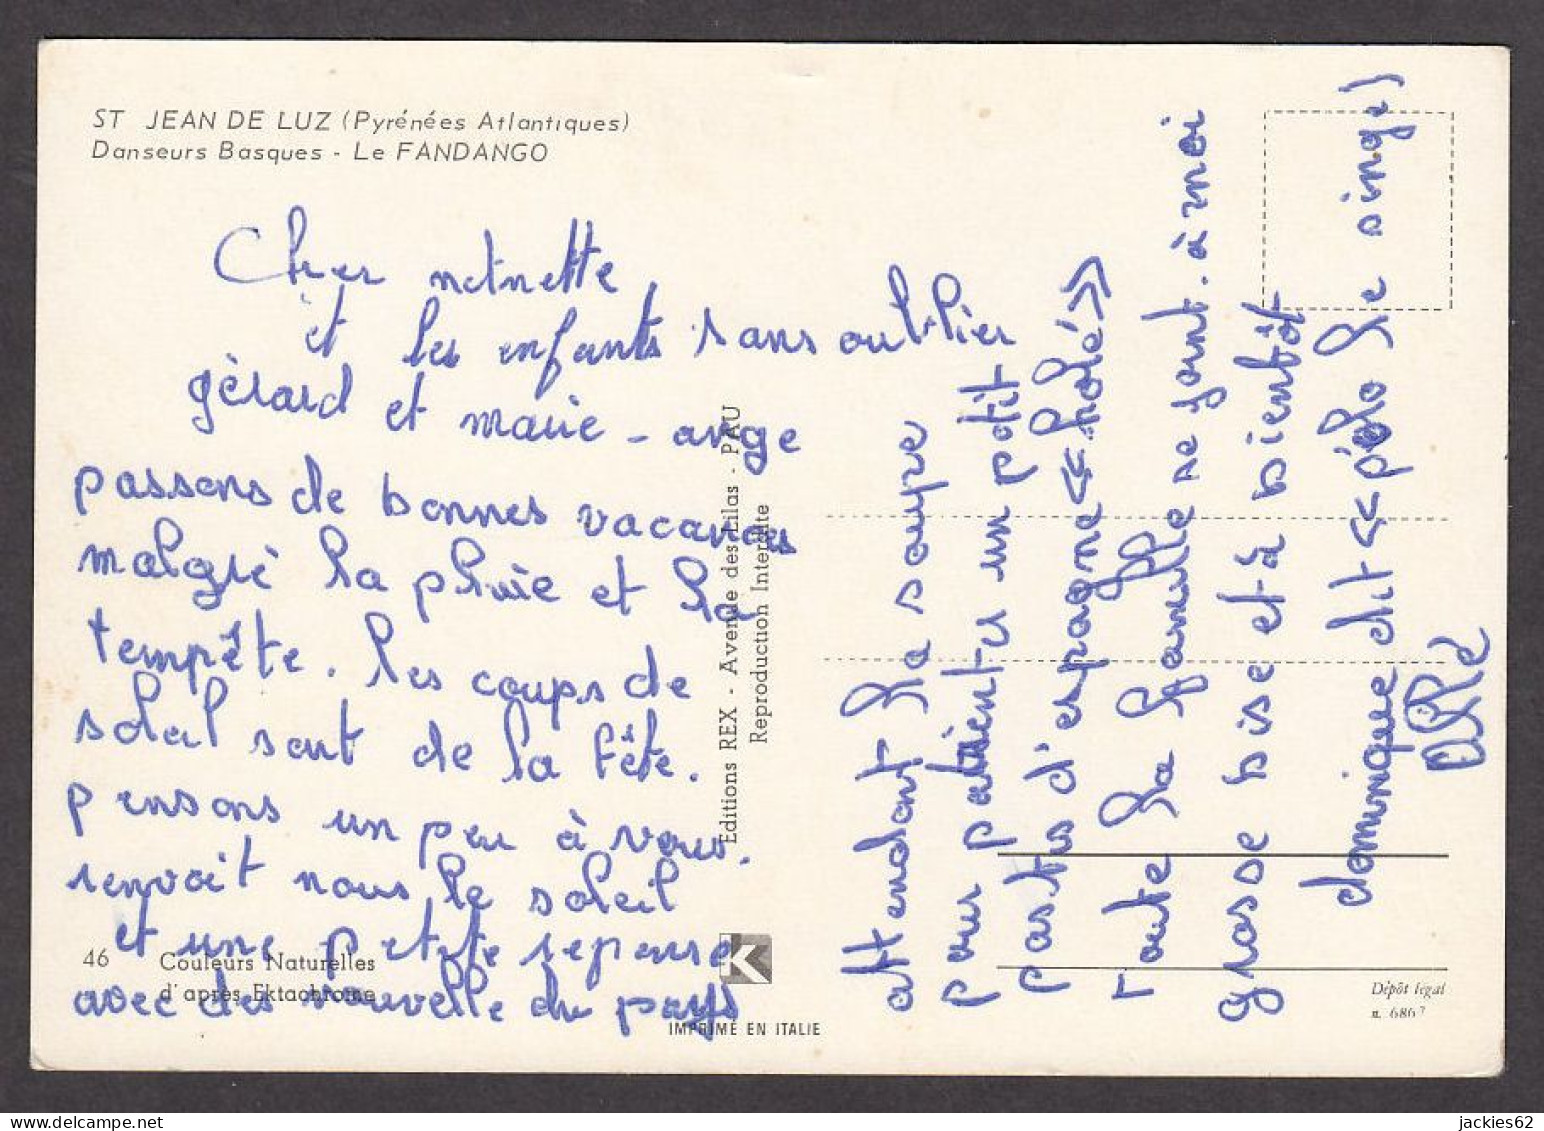 ST JEAN DE LUZ (Pyrénées Atlantiques)
Danseurs Basques - Le FANDANGO
Cher ninette
et les enfants sans oublier
gérard et marie-ange
passons de bonnes vacances
malgré la pluie et la
tempête. les coups de
soleil sont de la fête.
pensons un peu à vous.
renvoit nous le soleil
et une petite reponse
avec des nouvelle du pays
attendant la soupe
pour patienter un potit
pastis d'espagne « holé »
toute la famille se joint. à moi
grosse bise et à bientôt
dominique dit « pélo le singe)
46
Couleurs Naturelles
d'après Ektachrome
Editions REX - Avenue des Lilas - PAU
Reproduction Interdite
K
IMPRIMÉ EN ITALIE
Dépôt légal
n. 686?
jackies62